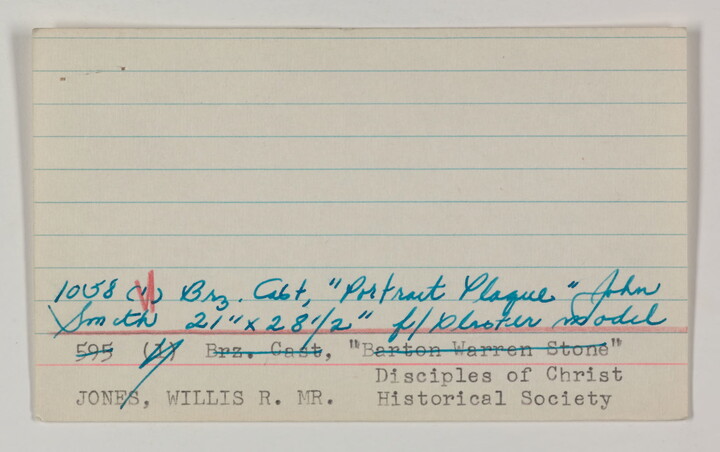 1058 (1) Brz. Cast, "Portrait Plaque" John
Smith 21" x 28 1/2" f/ Plaster model
595 (1) Brz. Cast, "Barton Warren Stone"
Disciples of Christ
JONES, WILLIS R. MR. Historical Society